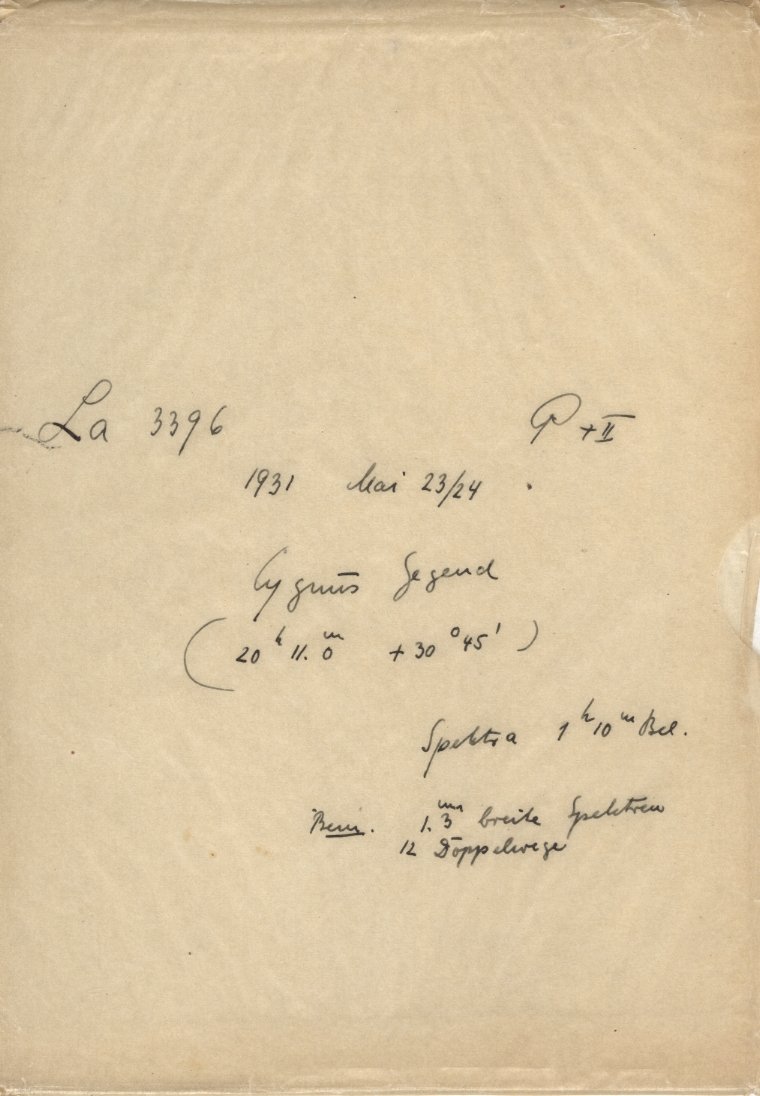 La 3396 P + II
1931 Mai 23/24 .
Cygnus Gegend
(20ʰ 11.ᵐ0 + 30° 45')
Spektra 1ʰ 10ᵐ Bel.
Bem. 1.3ᵐᵐ breite Spektren
12 Doppelwege